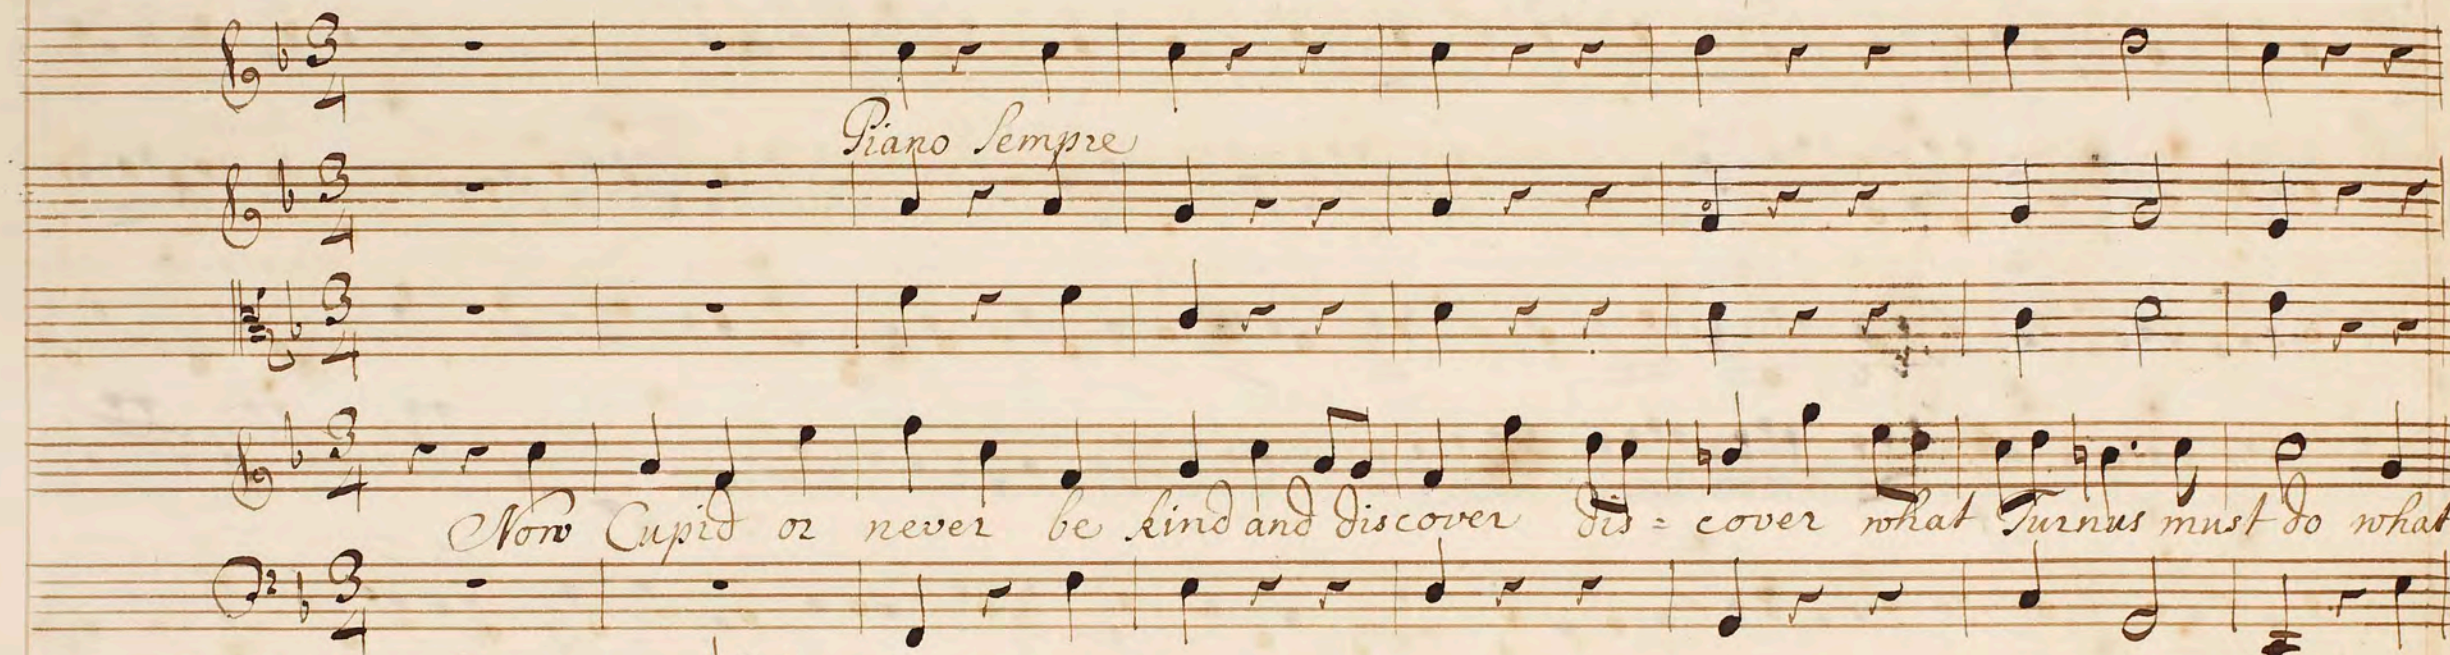 Piano Sempre
Now Cupid or never be kind and discover dis = cover what Turnus must do what